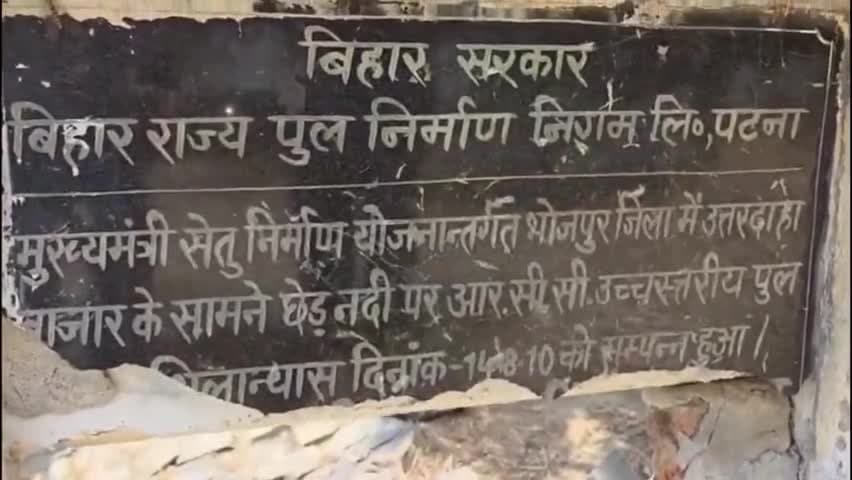 बिहार सरकार
बिहार राज्य पुल निर्माण निगम लि॰, पटना
मुख्यमंत्री सेतु निर्माण योजनान्तर्गत भोजपुर जिला में उत्तरदाहा
बाजार के सामने छेड़ नदी पर आर.सी.सी. उच्चस्तरीय पुल
शिलान्यास दिनांक-14-8-10 को सम्पन्न हुआ।